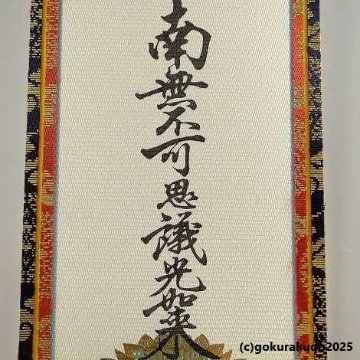 南無不可思議光如来
(c)gokurakudo2025